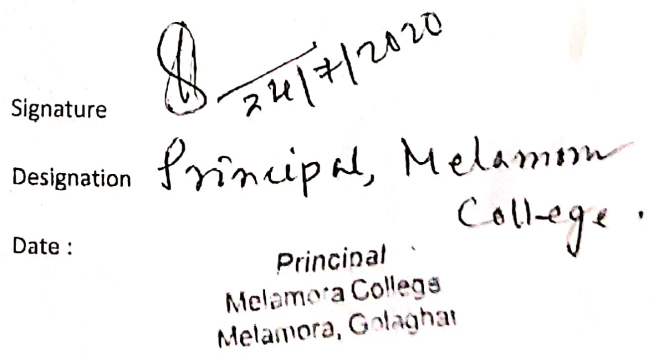 24/7/2020
Signature
Designation Principal, Melamora
College.
Date :
Principal
Melamora College
Melamora, Golaghat